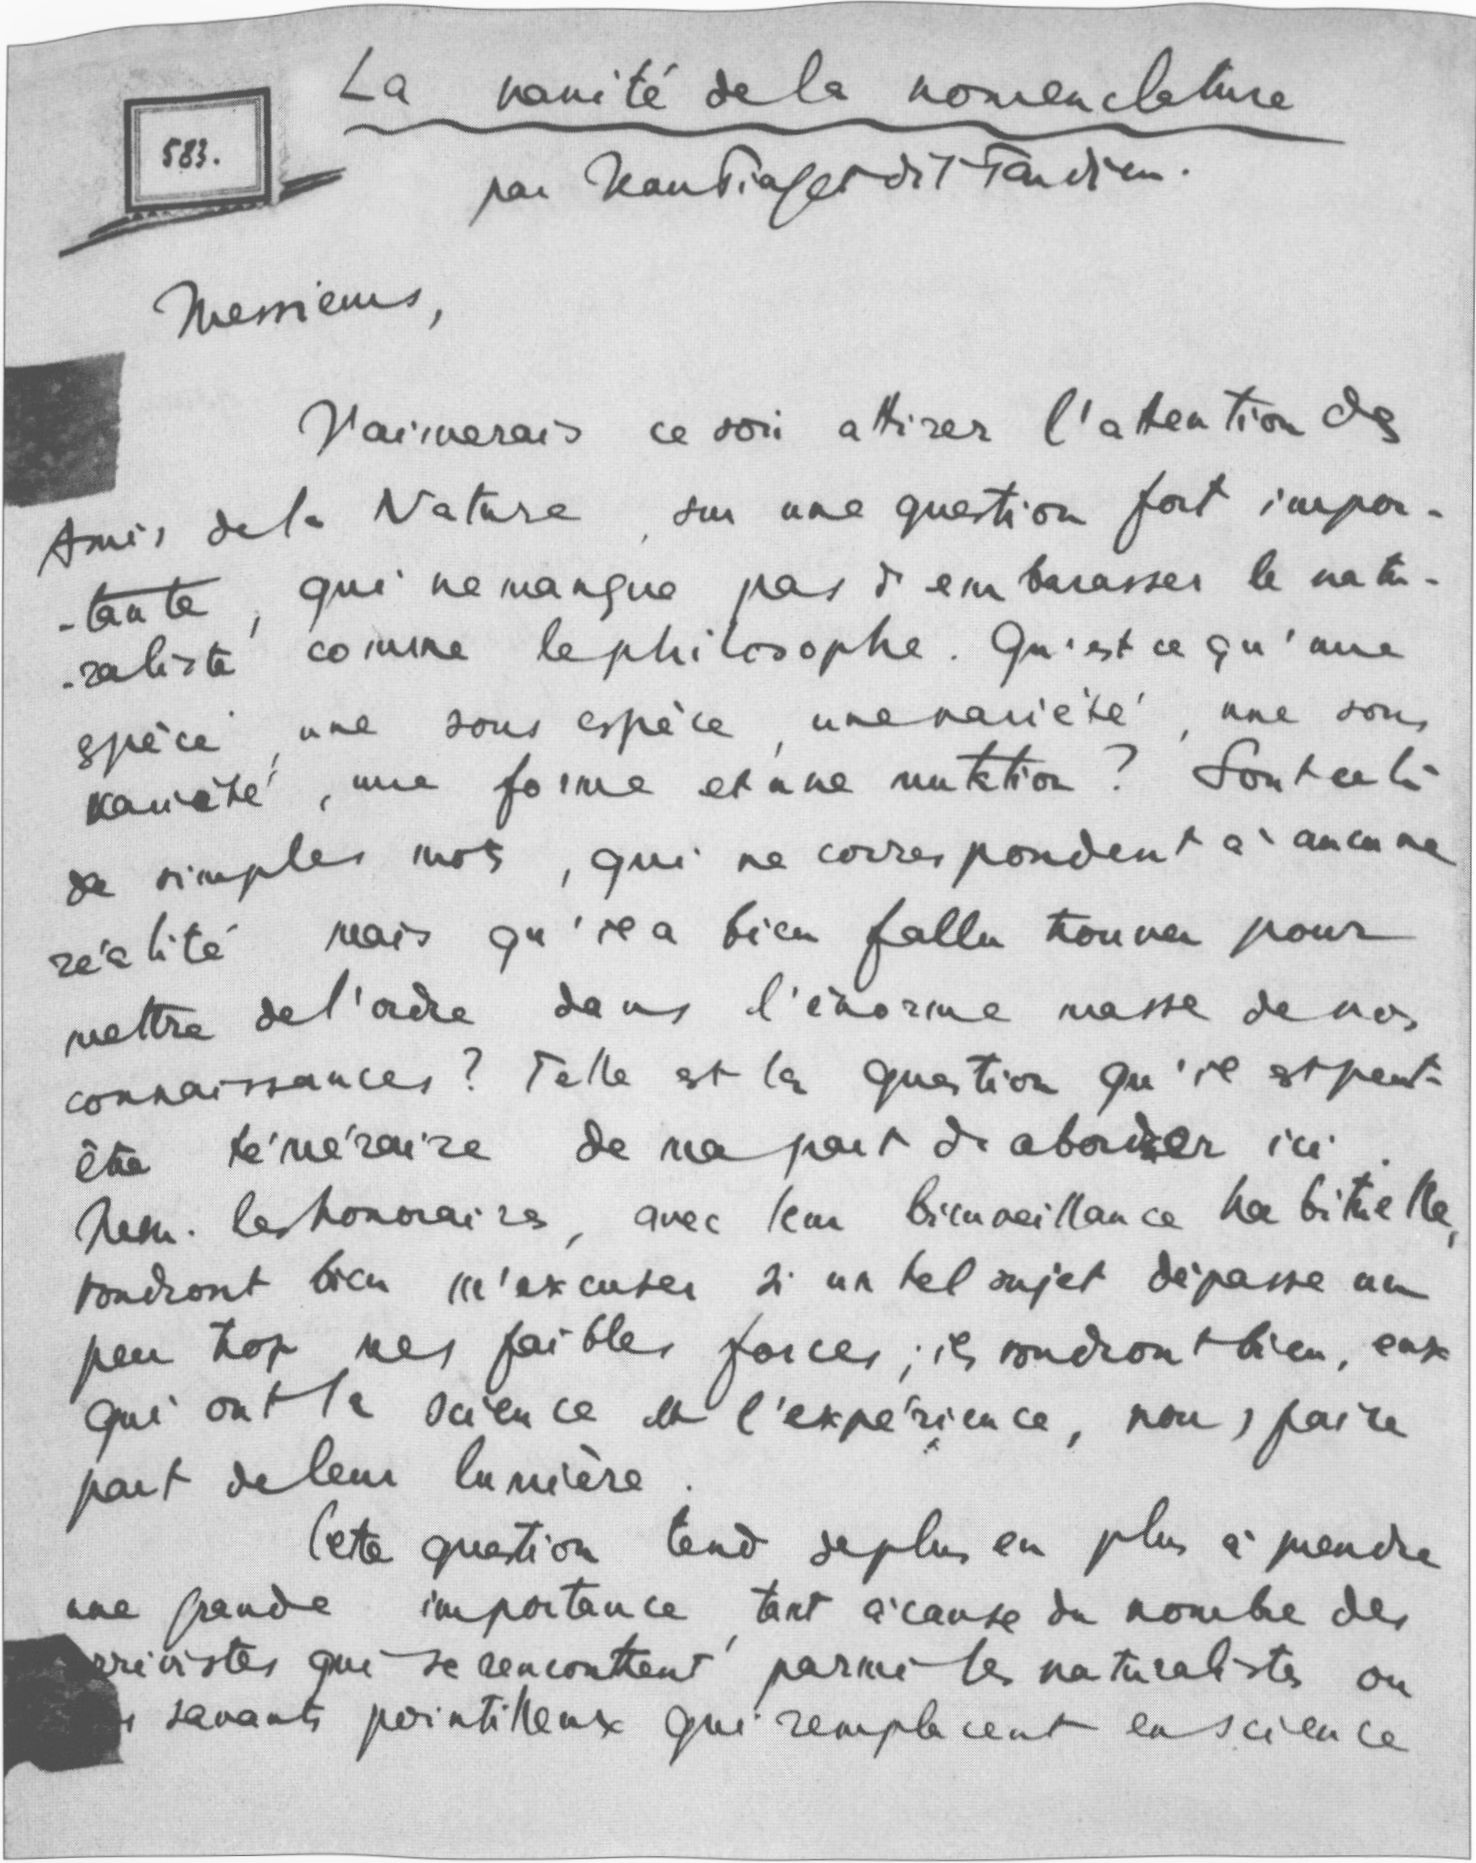 La vanité de la nomenclature
583.
par Jean Piaget dit Tardieu.
Messieurs,
J'aimerais ce soir attirer l'attention des
Amis de la Nature, sur une question fort impor-
-tante, qui ne manque pas d'embarasser le natu-
-raliste comme le philosophe. Qu'est ce qu'une
espèce, une sous espèce, une variété, une sous
variété, une forme et une mutation? Sont ce là
de simples mots, qui ne correspondent à aucune
réalité mais qu'il a bien fallu trouver pour
mettre de l'ordre dans l'énorme masse de nos
connaissances? Telle est la question qu'il est peut-
être téméraire de ma part d'aborder ici.
Mess. les honoraires, avec leur bienveillance habituelle,
voudront bien m'excuser si un tel sujet dépasse un
peu trop mes faibles forces; ils voudront bien, eux
qui ont la science et l'expérience, nous faire
part de leur lumière.
Cette question tend de plus en plus à prendre
une grande importance, tant à cause du nombre des
arrivistes qui se rencontrent parmi les naturalistes ou
savants pointilleux qui remplacent en science